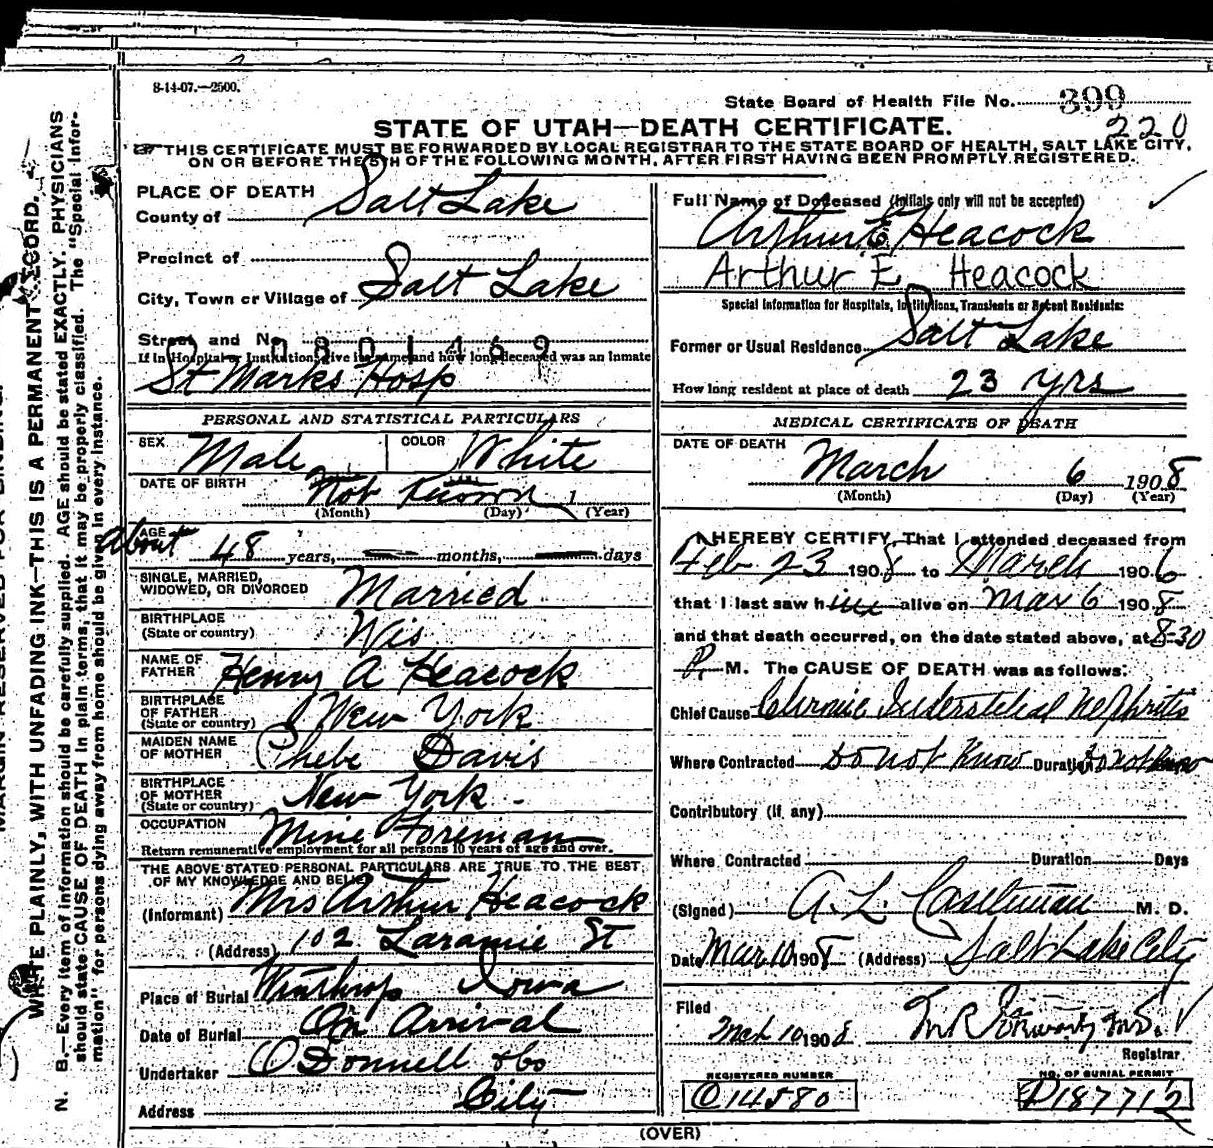 8-14-07.—2500.
State Board of Health File No. 399
220
STATE OF UTAH—DEATH CERTIFICATE.
THIS CERTIFICATE MUST BE FORWARDED BY LOCAL REGISTRAR TO THE STATE BOARD OF HEALTH, SALT LAKE CITY,
ON OR BEFORE THE 5TH OF THE FOLLOWING MONTH, AFTER FIRST HAVING BEEN PROMPTLY REGISTERED.
PLACE OF DEATH
County of Salt Lake
Precinct of
City, Town or Village of Salt Lake
Street and No.
0801469
If in Hospital or Institution, give its name and how long deceased was an inmate
St Marks Hosp
PERSONAL AND STATISTICAL PARTICULARS
SEX Male COLOR White
DATE OF BIRTH Not Known 1
(Month) (Day) (Year)
AGE About 48 years, months, days
SINGLE, MARRIED,
WIDOWED, OR DIVORCED Married
BIRTHPLACE
(State or country) Wis
NAME OF
FATHER Henry A Heacock
BIRTHPLACE
OF FATHER
(State or country) New York
MAIDEN NAME
OF MOTHER Phebe Davis
BIRTHPLACE
OF MOTHER
(State or country) New York
OCCUPATION Mine Foreman
Return remunerative employment for all persons 10 years of age and over.
THE ABOVE STATED PERSONAL PARTICULARS ARE TRUE TO THE BEST
OF MY KNOWLEDGE AND BELIEF
(Informant) Mrs Arthur Heacock
(Address) 102 Laramie St
Place of Burial Winthrop Iowa
Date of Burial On Arrival
Undertaker O'Donnell & Co
Address City
Full Name of Deceased (Initials only will not be accepted)
Arthur E Heacock
Arthur E Heacock
Special Information for Hospitals, Institutions, Transients or Recent Residents:
Former or Usual Residence Salt Lake
How long resident at place of death 23 yrs
MEDICAL CERTIFICATE OF DEATH
DATE OF DEATH
March 6 1908
(Month) (Day) (Year)
I HEREBY CERTIFY, That I attended deceased from
Feb 23 1908 to March 1906
that I last saw him alive on Mar 6 1908
and that death occurred, on the date stated above, at 8-30
P. M. The CAUSE OF DEATH was as follows:
Chief Cause Chronic Interstitial Nephritis
Where Contracted Do not Know Duration Do not Know
Contributory (if any)
Where Contracted Duration Days
(Signed) A. L. Castleman M. D.
Date Mar 10 1908 (Address) Salt Lake City
Filed
Mch 10 1908 M.D.
Registrar
REGISTERED NUMBER
C14580
NO. OF BURIAL PERMIT
D187712
(OVER)
WRITE PLAINLY, WITH UNFADING INK—THIS IS A PERMANENT RECORD.
N. B.—Every item of information should be carefully supplied. AGE should be stated EXACTLY. PHYSICIANS
should state CAUSE OF DEATH in plain terms, that it may be properly classified. The "Special Infor-
mation" for persons dying away from home should be given in every instance.